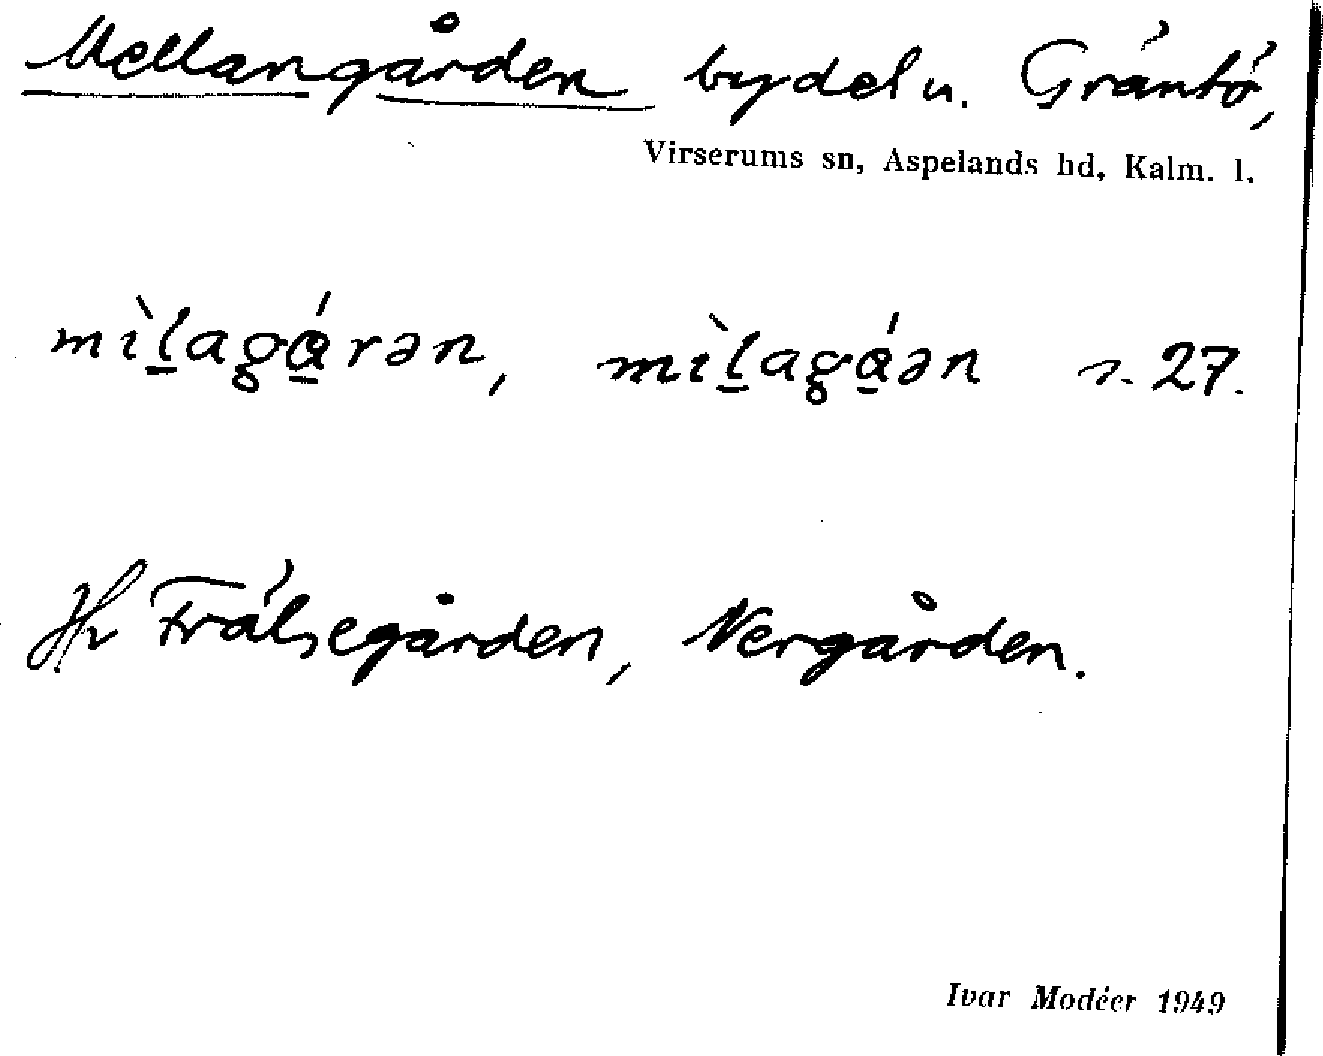 Mellangården bydel u. Gräntö,
Virserums sn, Aspelands hd, Kalm. l.
mìl̲agá̲rən, mìl̲agá̲ən s. 27.
Jfr Frälsegården, Nergården.
Ivar Modéer 1949